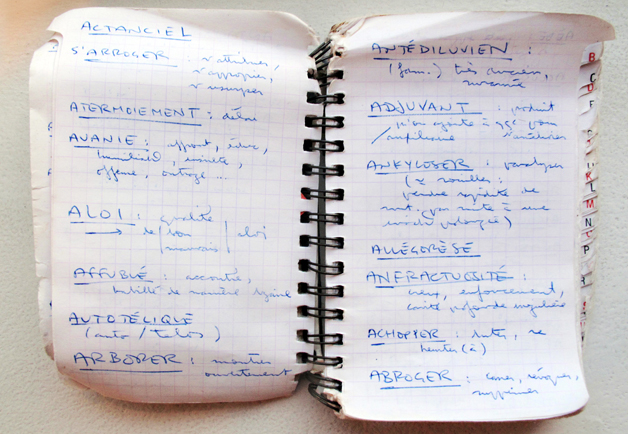 ACTANCIEL
S'ARROGER : s'attribuer,
s'approprier,
usurper
ATERMOIEMENT : délai
AVANIE : affront,
humiliat°, insulte,
offense, outrage ...
ALOI : qualité
→ de bon / mauvais / aloi
AFFUBLÉ : accoutré,
habillé de manière
AUTOTÉLIQUE
(auto / telos)
ARBORER : montrer
ouvertement
ANTÉDILUVIEN :
(fam.) très ancien,
suranné
ADJUVANT : produit
qu'on ajoute à qqc pour
améliorer
ANKYLOSER : paralyser
(se rouiller :
perdre rapidité de
mvt, par suite à une
immob. prolongée)
ALLÉGORÈSE
ANFRACTUOSITÉ :
creux, enfoncement,
cavité profonde irrégulière
ACHOPPER : buter, se
heurter (à)
ABROGER : casser, révoquer,
supprimer
B
C
D
F
K
L
M
N
P
R